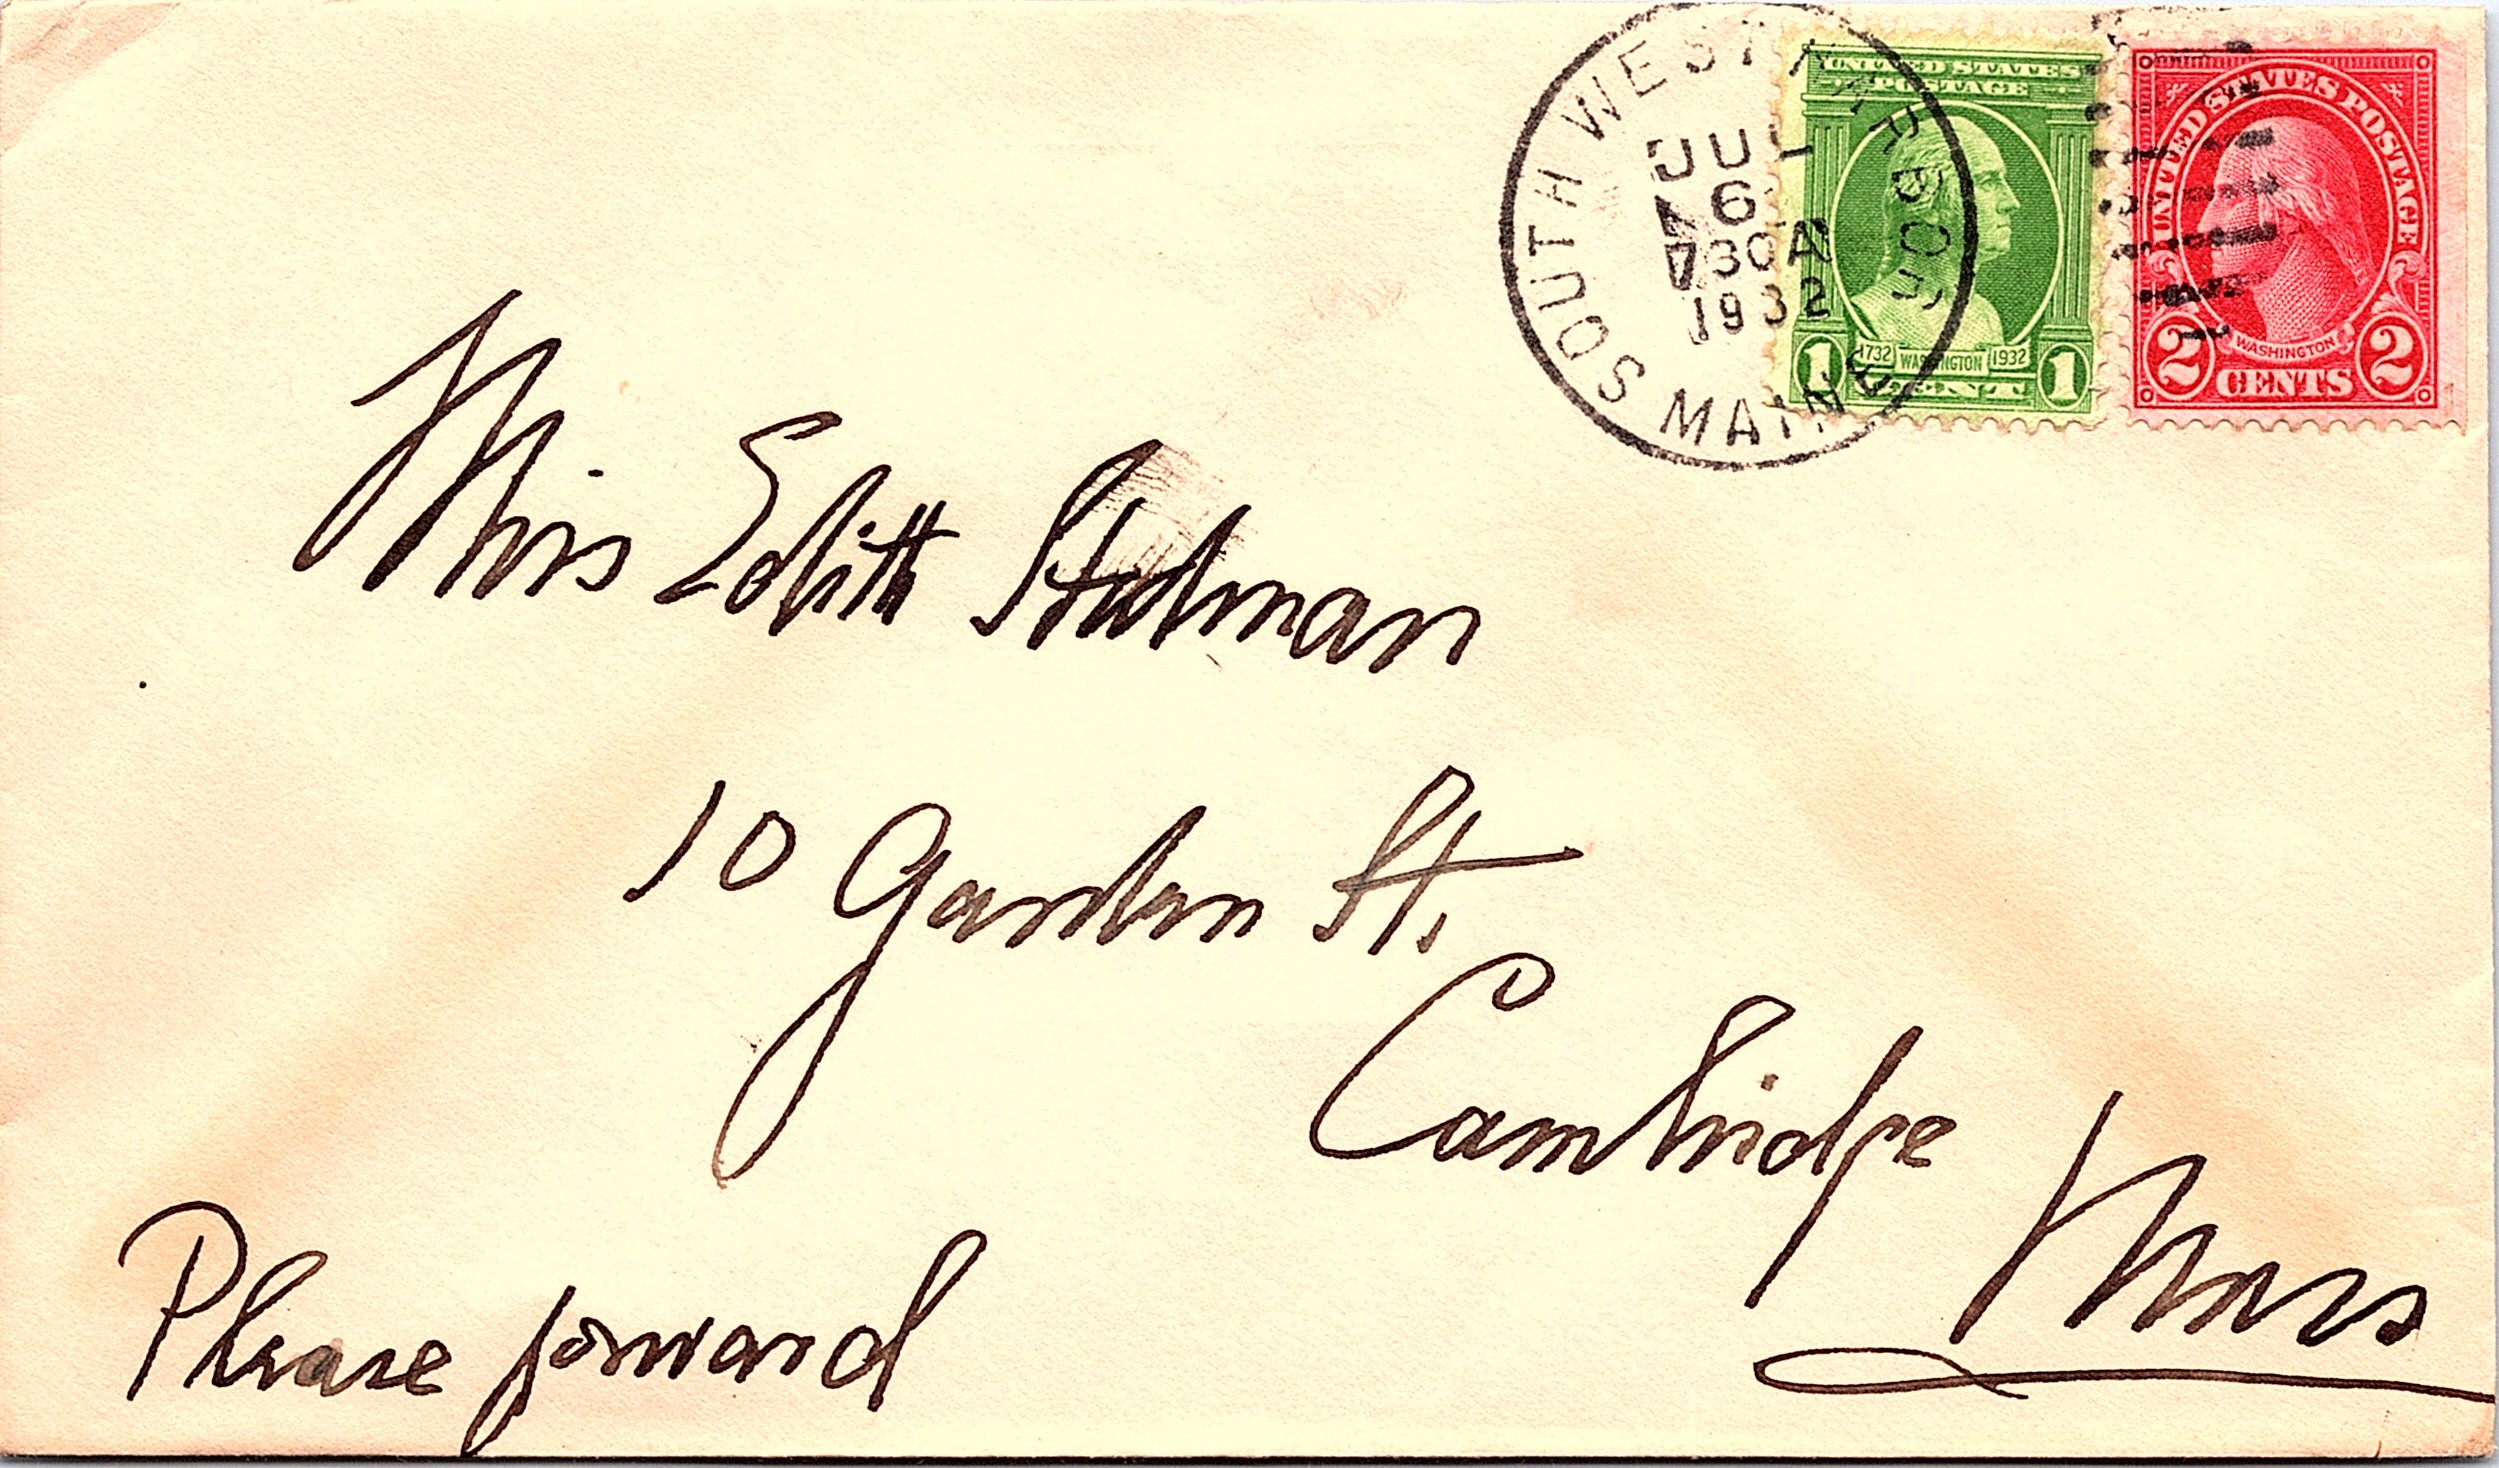 SOUTH WEST HARBOR
MAINE
JUL
6
730A
1932
UNITED STATES
POSTAGE
1732 WASHINGTON 1932
1 CENT 1
UNITED STATES POSTAGE
WASHINGTON
2 CENTS 2
Miss Edith
10 Garden St.
Cambridge
Mass
Please forward